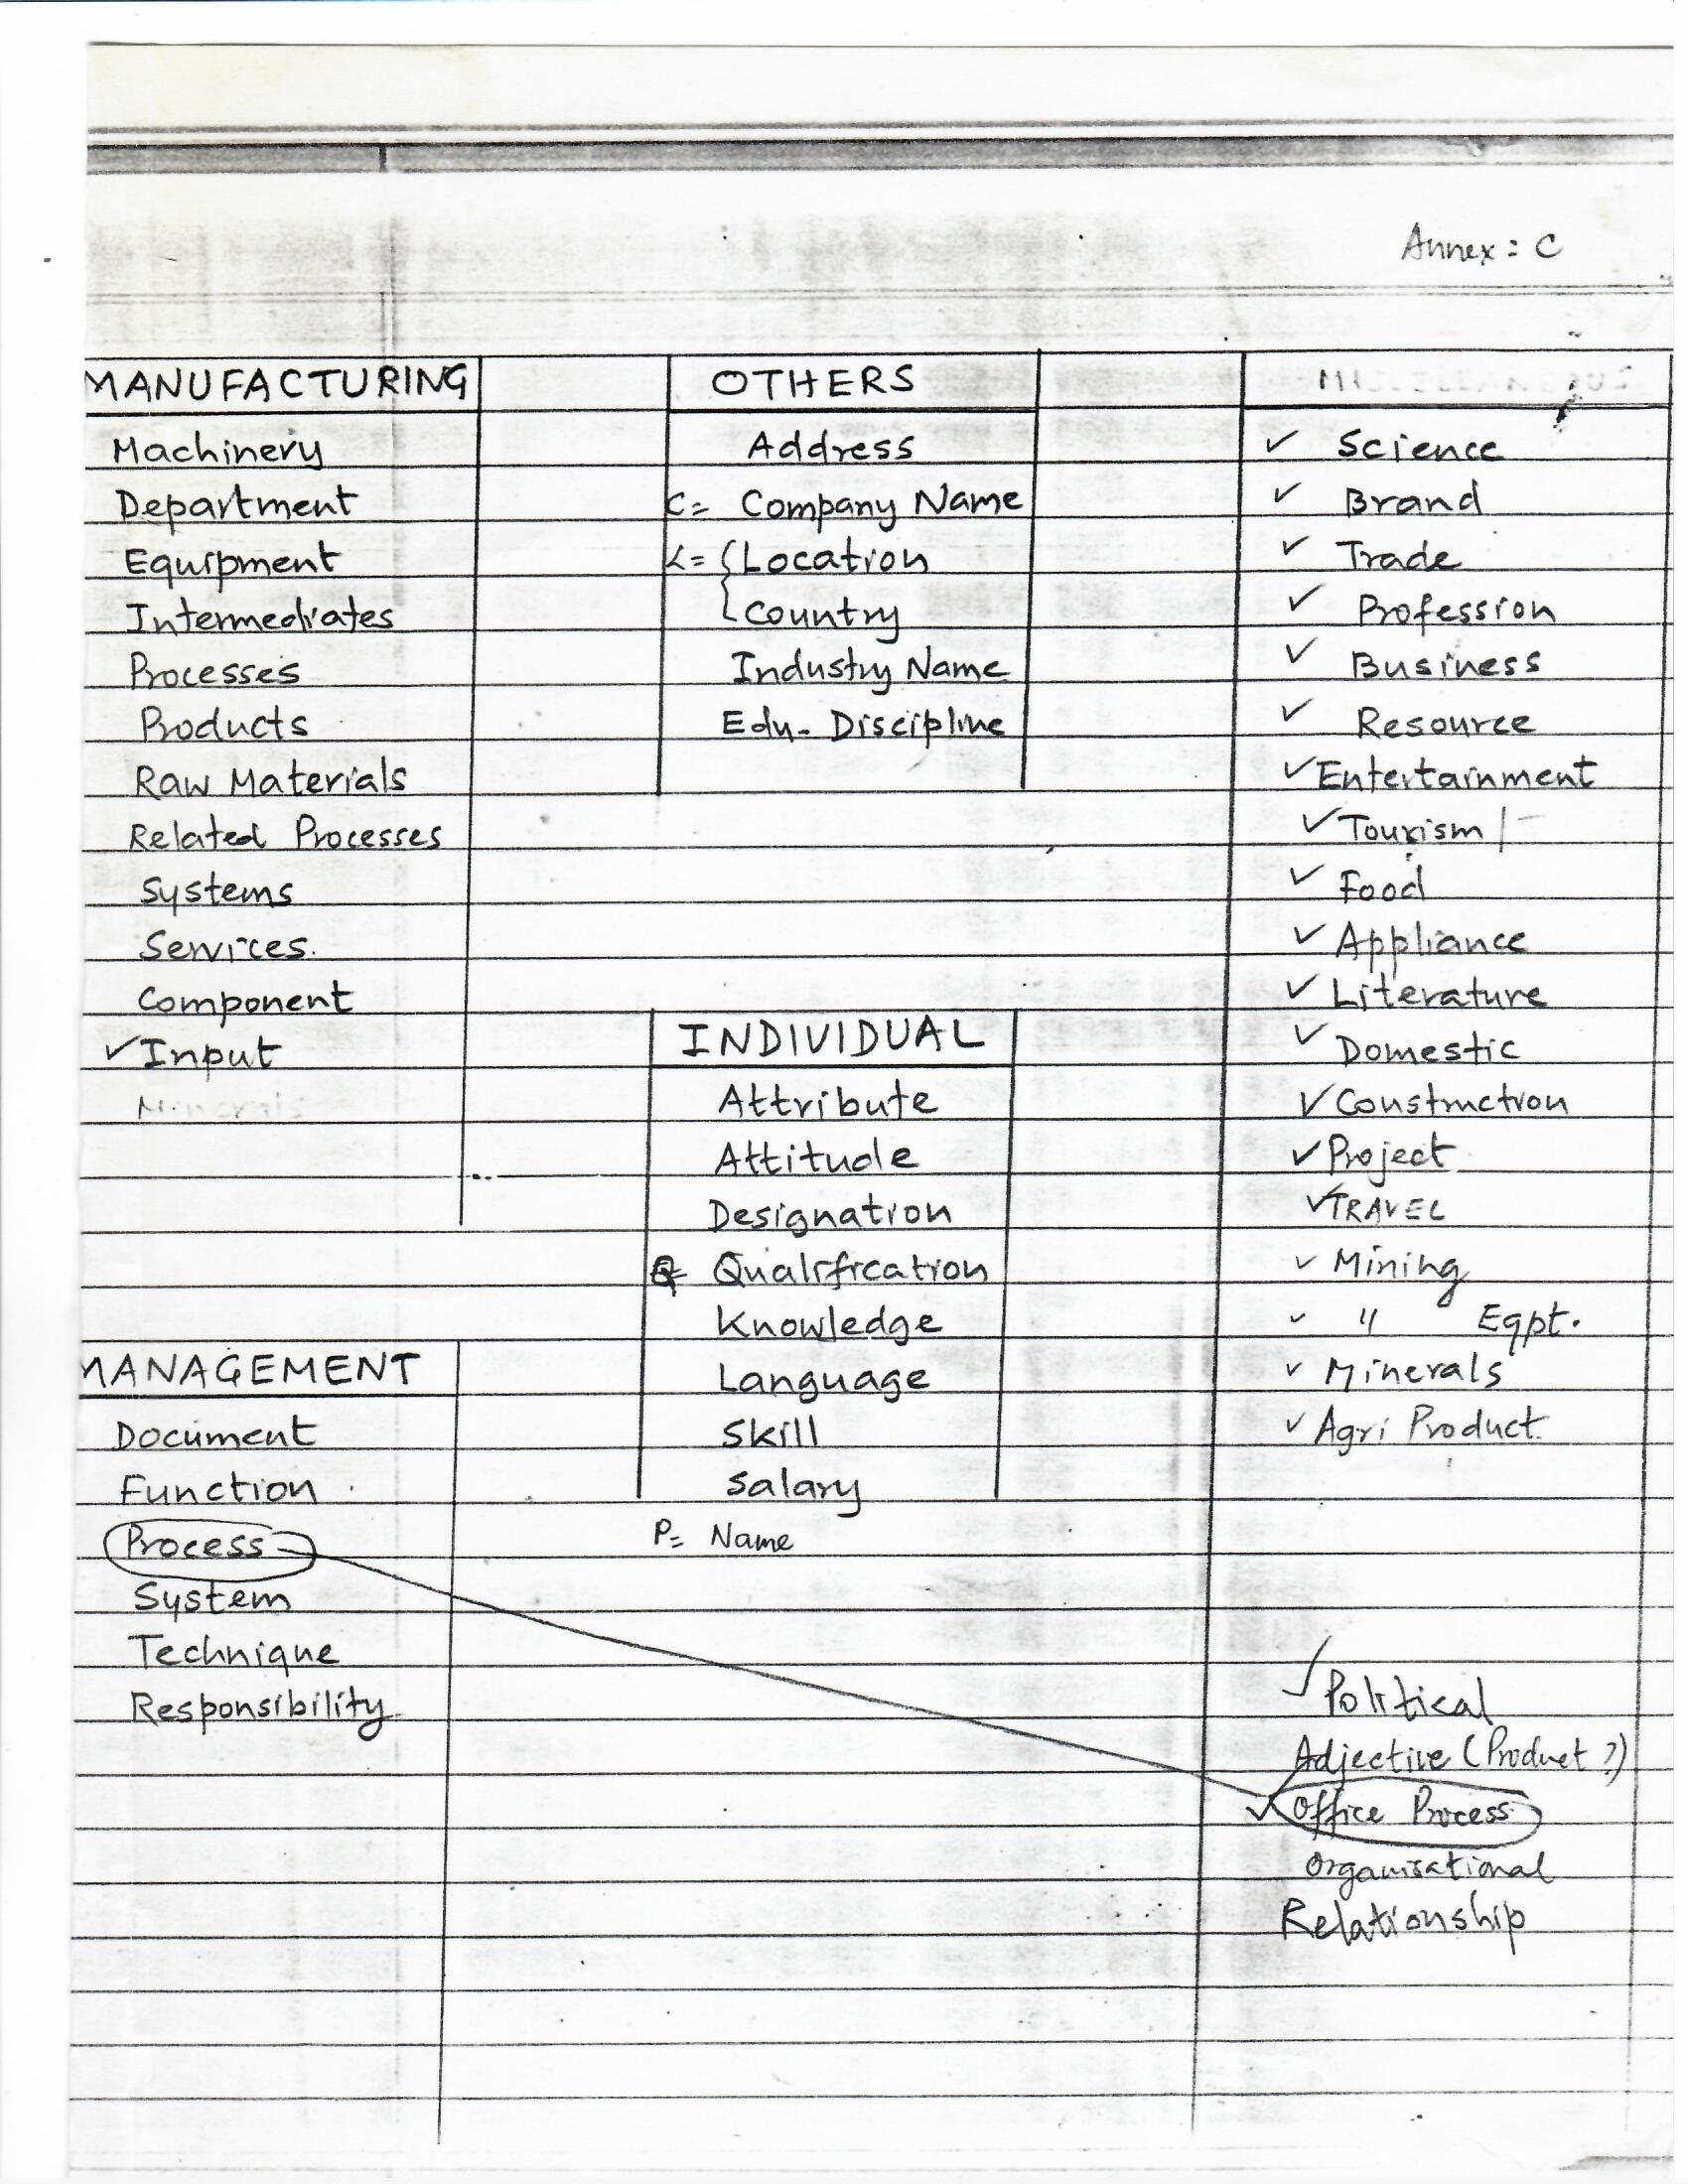 Annex : C
MANUFACTURING
Machinery
Department
Equipment
Intermediates
Processes
Products
Raw Materials
Related Processes
Systems
Services.
Component
✓ Input
Minerals
MANAGEMENT
Document
Function
Process
System
Technique
Responsibility
OTHERS
Address
C= Company Name
L= { Location
Country
Industry Name
Edu- Discipline
INDIVIDUAL
Attribute
Attitude
Designation
Qualification
Knowledge
Language
Skill
Salary
P= Name
MISCELLANEOUS
✓ Science
✓ Brand
✓ Trade
✓ Profession
✓ Business
✓ Resource
✓ Entertainment
✓ Tourism /-
✓ Food
✓ Appliance
✓ Literature
✓ Domestic
✓ Construction
✓ Project
✓ TRAVEL
✓ Mining
✓ " Eqpt.
✓ Minerals
✓ Agri Product.
✓ Political
Adjective (Product ?)
✓ Office Process
Organisational
Relationship